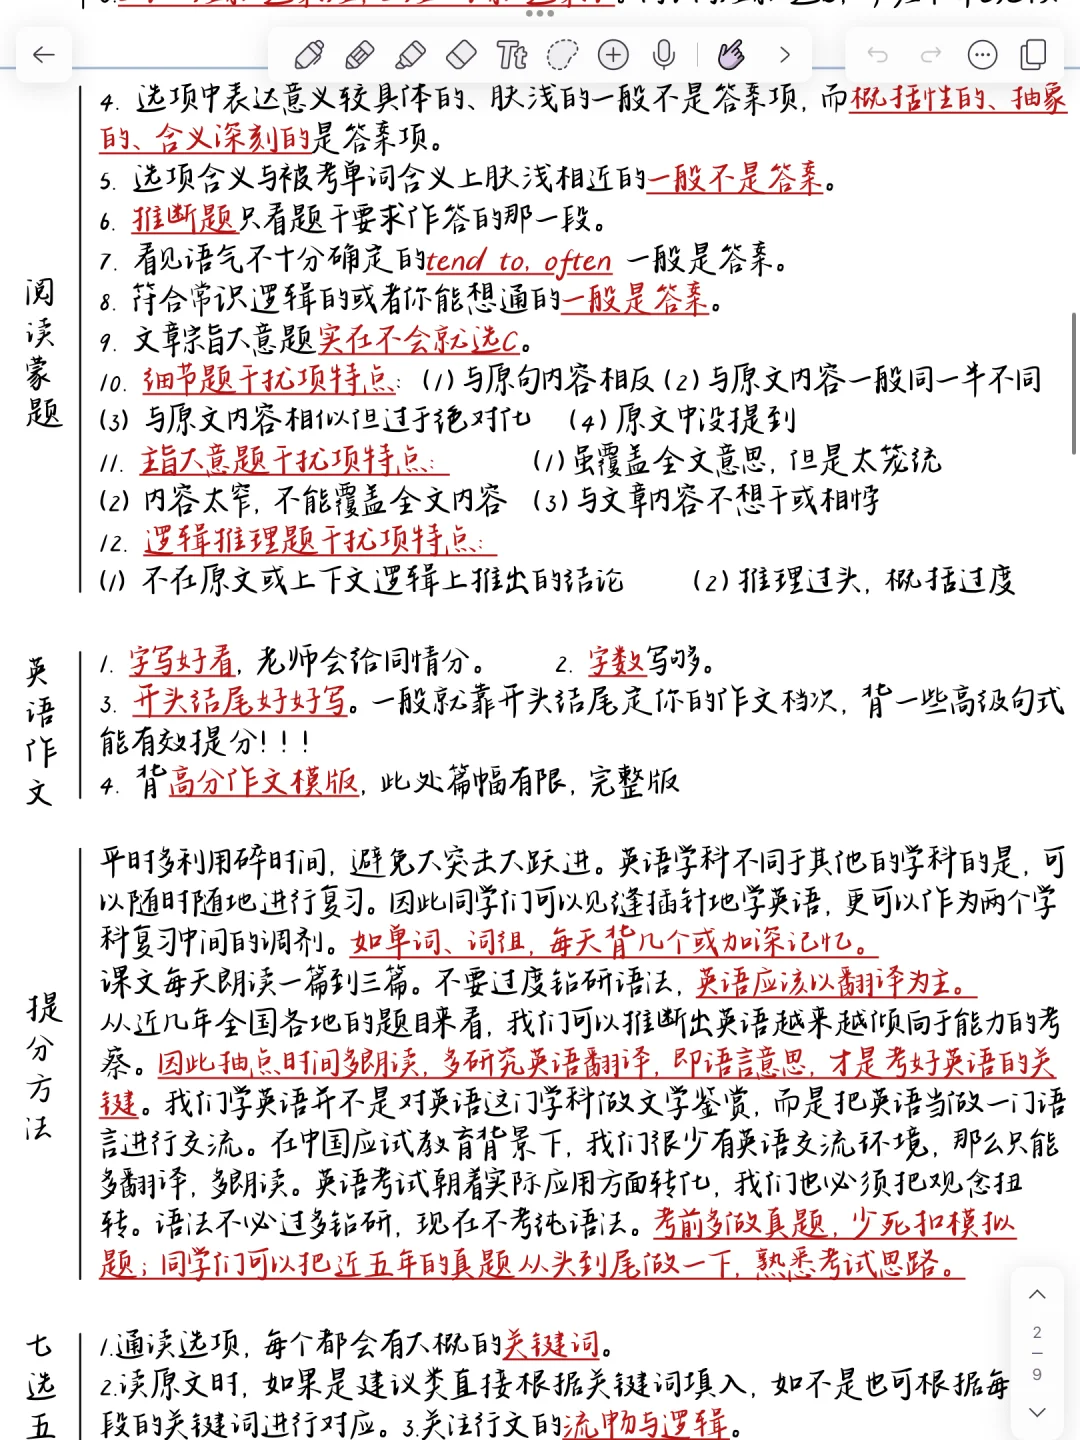 4. 选项中表达意义较具体的、肤浅的一般不是答案项，而概括性的、抽象
的、含义深刻的是答案项。
5. 选项含义与被考单词含义上肤浅相近的一般不是答案。
6. 推断题只看题干要求作答的那一段。
7. 看见语气不十分确定的tend to, often 一般是答案。
8. 符合常识逻辑的或者你能想通的一般是答案。
9. 文章宗旨大意题实在不会就选C。
10. 细节题干扰项特点：(1)与原句内容相反 (2)与原文内容一般同一半不同
(3) 与原文内容相似但过于绝对化 (4) 原文中没提到
11. 主旨大意题干扰项特点： (1)虽覆盖全文意思，但是太笼统
(2) 内容太窄，不能覆盖全文内容 (3)与文章内容不想干或相悖
12. 逻辑推理题干扰项特点：
(1) 不在原文或上下文逻辑上推出的结论 (2)推理过头，概括过度
阅读蒙题
1. 字写好看，老师会给同情分。 2. 字数写够。
3. 开头结尾好好写。一般就靠开头结尾定你的作文档次，背一些高级句式
能有效提分！！！
4. 背高分作文模版，此处篇幅有限，完整版
英语作文
平时多利用碎时间，避免大突击大跃进。英语学科不同于其他的学科的是，可
以随时随地进行复习。因此同学们可以见缝插针地学英语，更可以作为两个学
科复习中间的调剂。如单词、词组，每天背几个或加深记忆。
课文每天朗读一篇到三篇。不要过度钻研语法，英语应该以翻译为主。
从近几年全国各地的题目来看，我们可以推断出英语越来越倾向于能力的考
察。因此抽点时间多朗读，多研究英语翻译，即语言意思，才是考好英语的关
键。我们学英语并不是对英语这门学科做文学鉴赏，而是把英语当做一门语
言进行交流。在中国应试教育背景下，我们很少有英语交流环境，那么只能
多翻译，多朗读。英语考试朝着实际应用方面转化，我们也必须把观念扭
转。语法不必过多钻研，现在不考纯语法。考前多做真题，少死扣模拟
题；同学们可以把近五年的真题从头到尾做一下，熟悉考试思路。
提分方法
1.通读选项，每个都会有大概的关键词。
2.读原文时，如果是建议类直接根据关键词填入，如不是也可根据每
段的关键词进行对应。3.关注行文的流畅与逻辑。
七选五
Tt
2
9